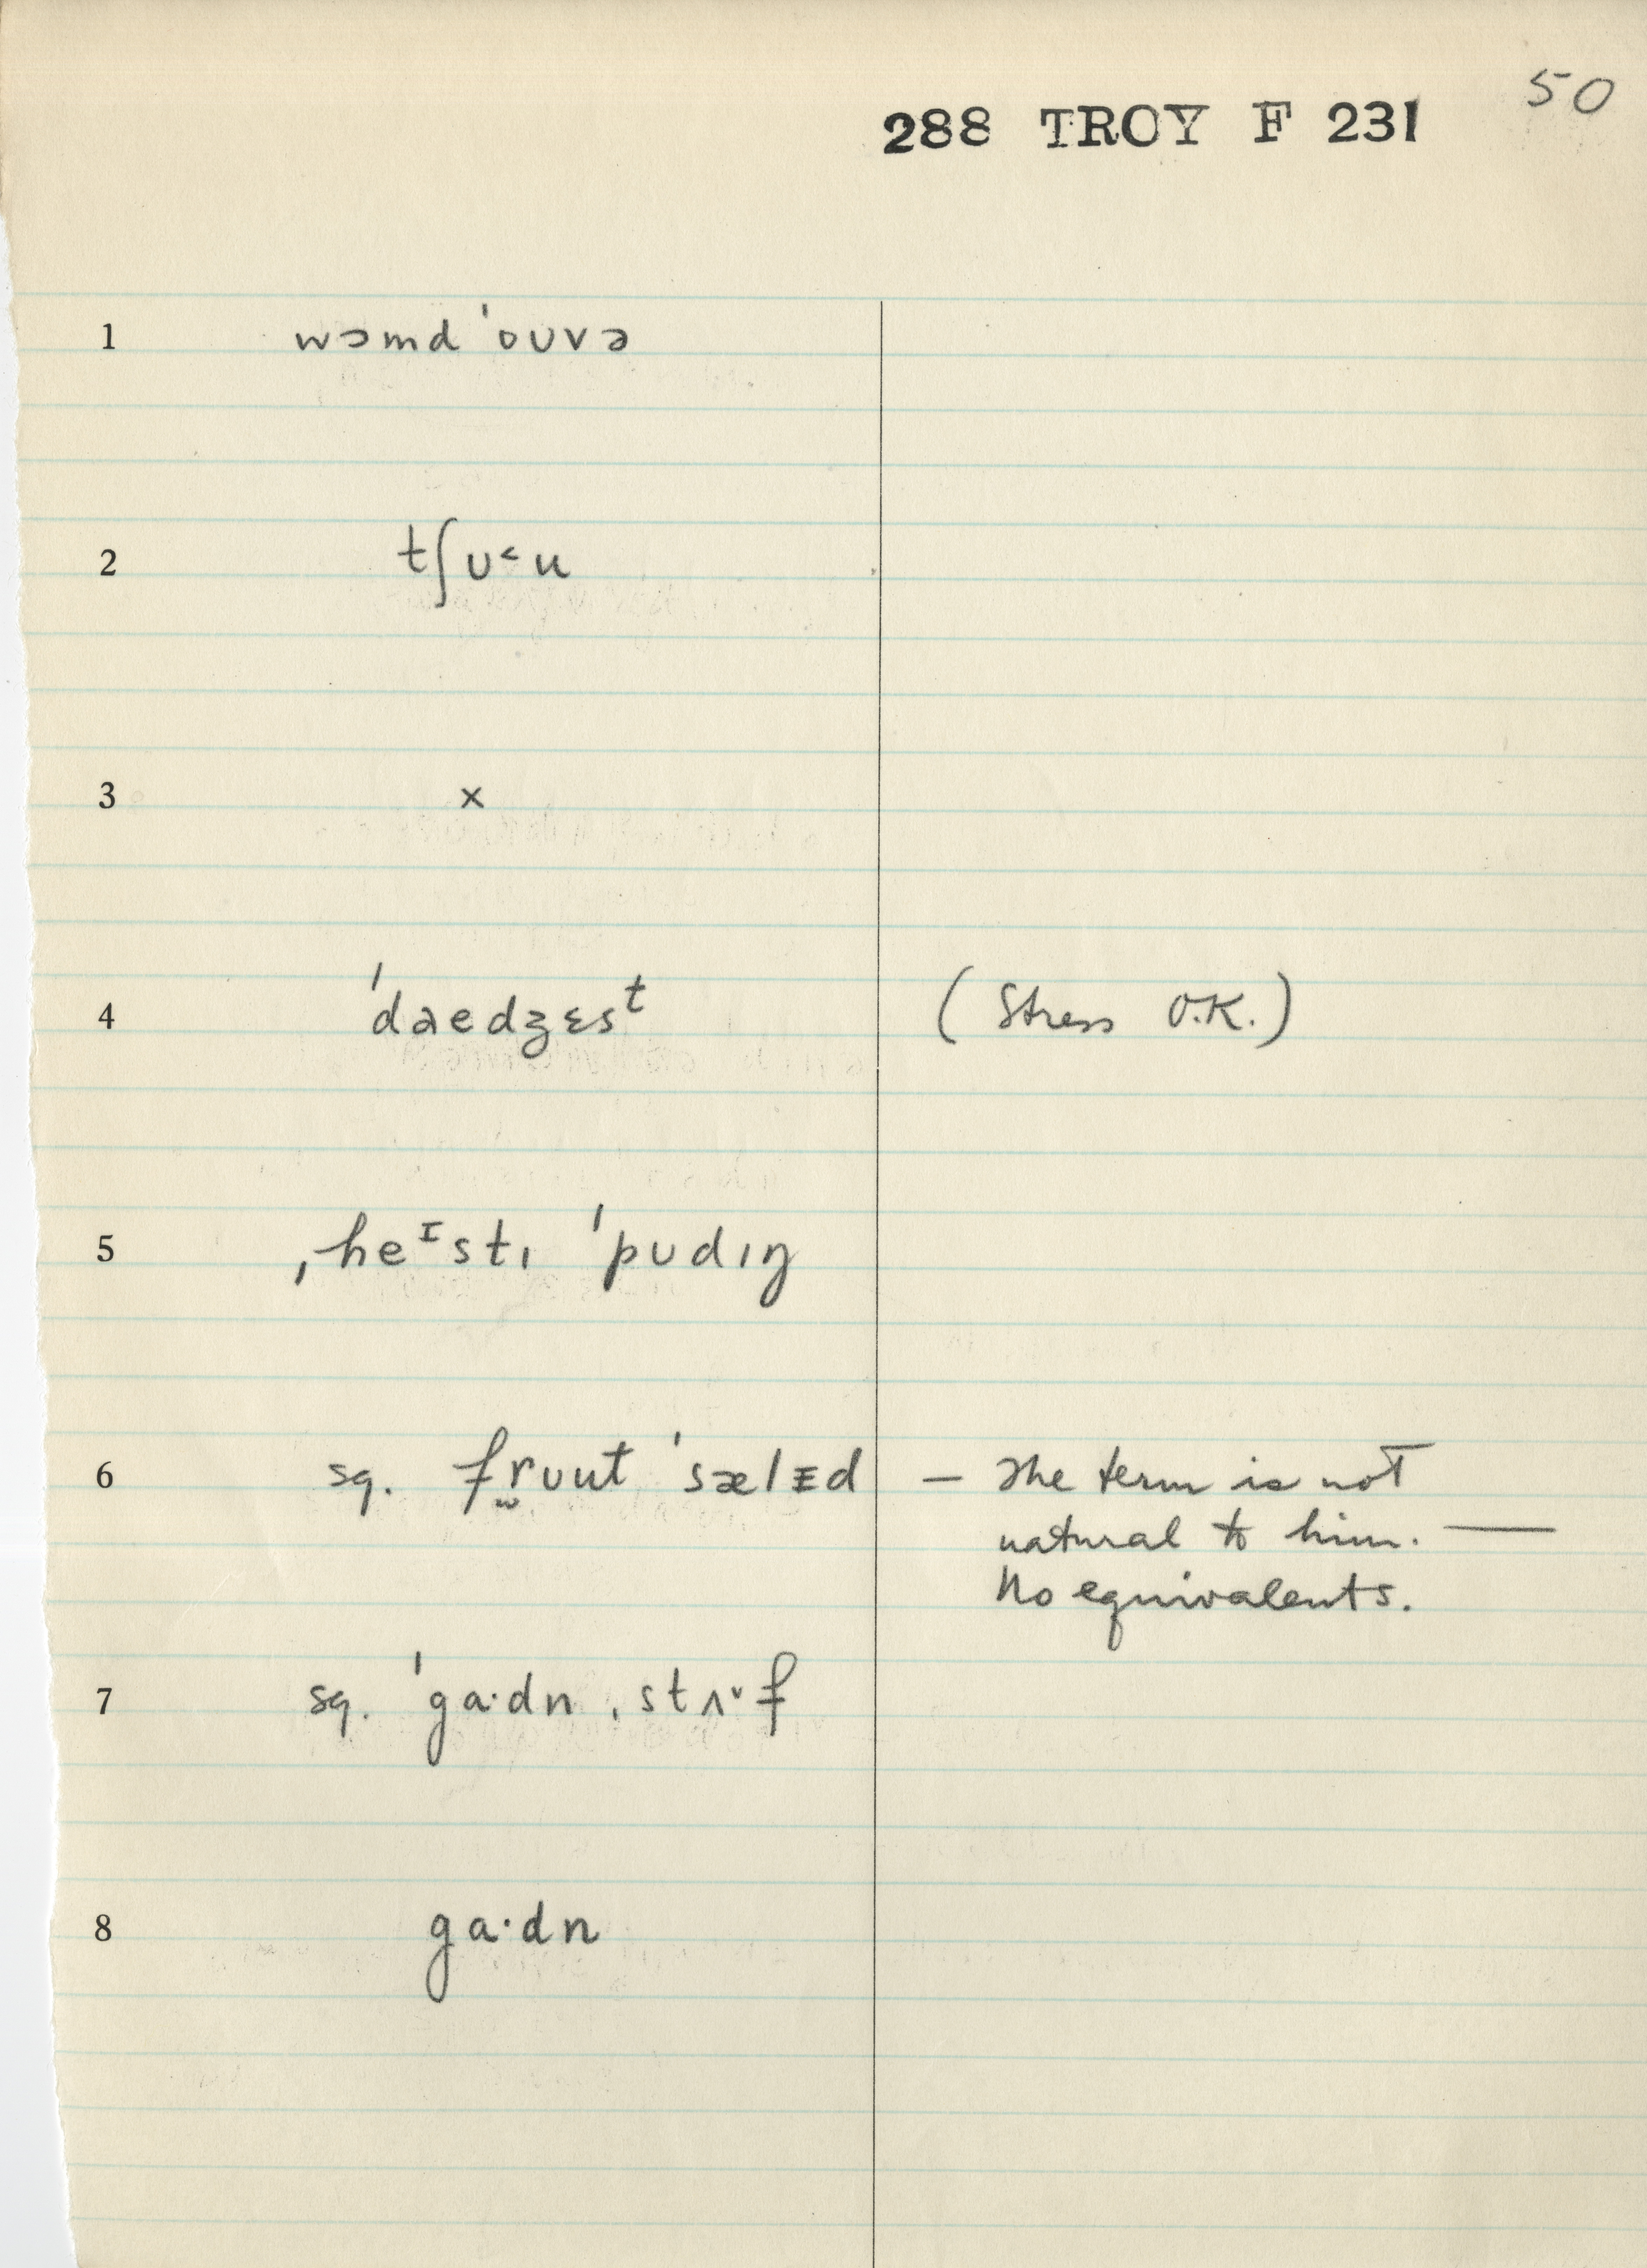 50
288 TROY F 231
1 wɔmd 'ouvə
2 tʃʊ˂u
3 ×
4 'daedʒɛsᵗ (Stress O.K.)
5 ˌheᶦstɪ 'pʊdɪŋ
6 sq. fr̫ʊut 'sælᵻd — The term is not
natural to him. —
No equivalents.
7 sq. 'ga·dn ˌstʌ˅f
8 ga·dn